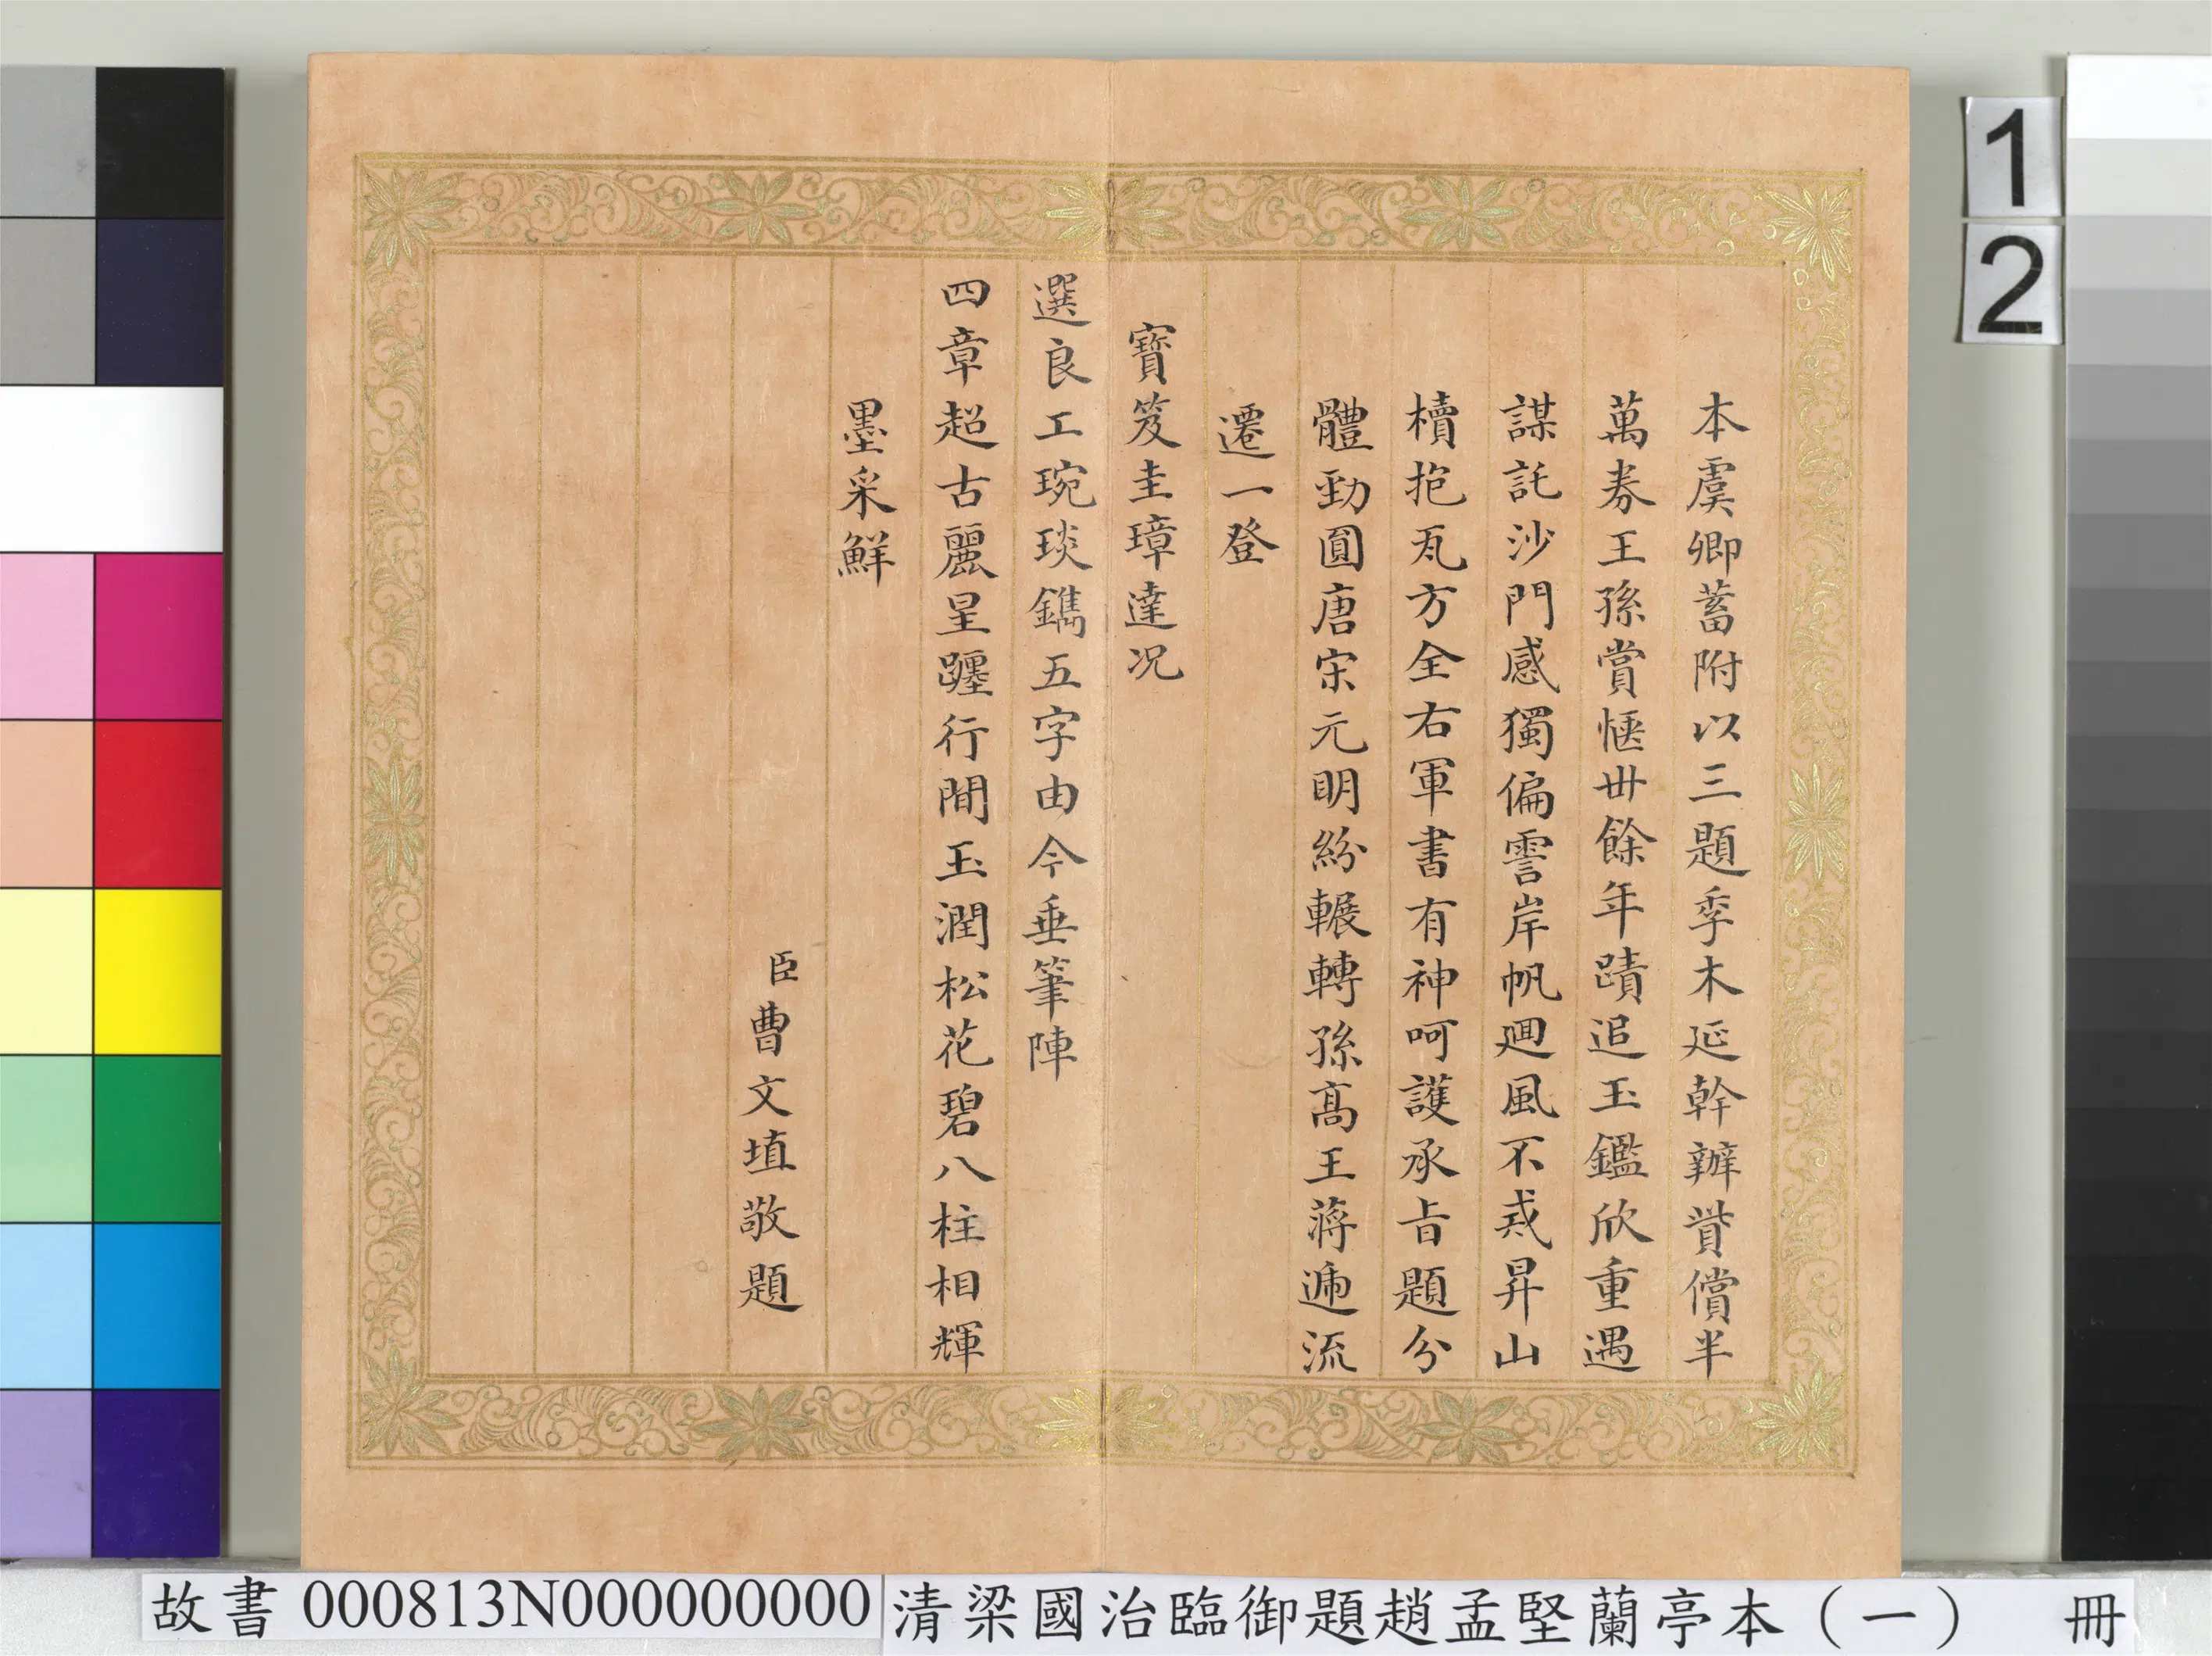 本虞卿蓄附以三題季木延幹辦貲償半
萬券王孫賞愜卅餘年蹟追玉鑑欣重遇
謀託沙門感獨偏霅岸帆迴風不戒昇山
櫝抱瓦方全右軍書有神呵護承旨題分
體勁圓唐宋元明紛輾轉孫高王蔣遞流
遷一登
寶笈圭璋達况
選良工琬琰鐫五字由今垂筆陣
四章超古麗星躔行間玉潤松花碧八柱相輝
墨采鮮
臣曹文埴敬題
1
2
故書 000813N000000000 清梁國治臨御題趙孟堅蘭亭本（一） 冊